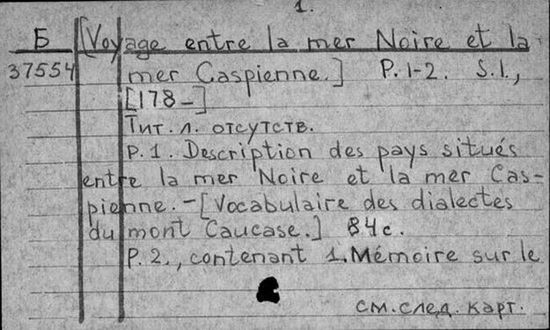 1.
Б [Voyage entre la mer Noire et la
37554 mer Caspienne.] P. 1-2. S.l.,
[178-]
Тит. л. отсутств.
P. 1. Description des pays situés
entre la mer Noire et la mer Cas-
pienne.-[Vocabulaire des dialectes
du mont Caucase.] 84 c.
P. 2., contenant 1. Mémoire sur le
см. след. карт.